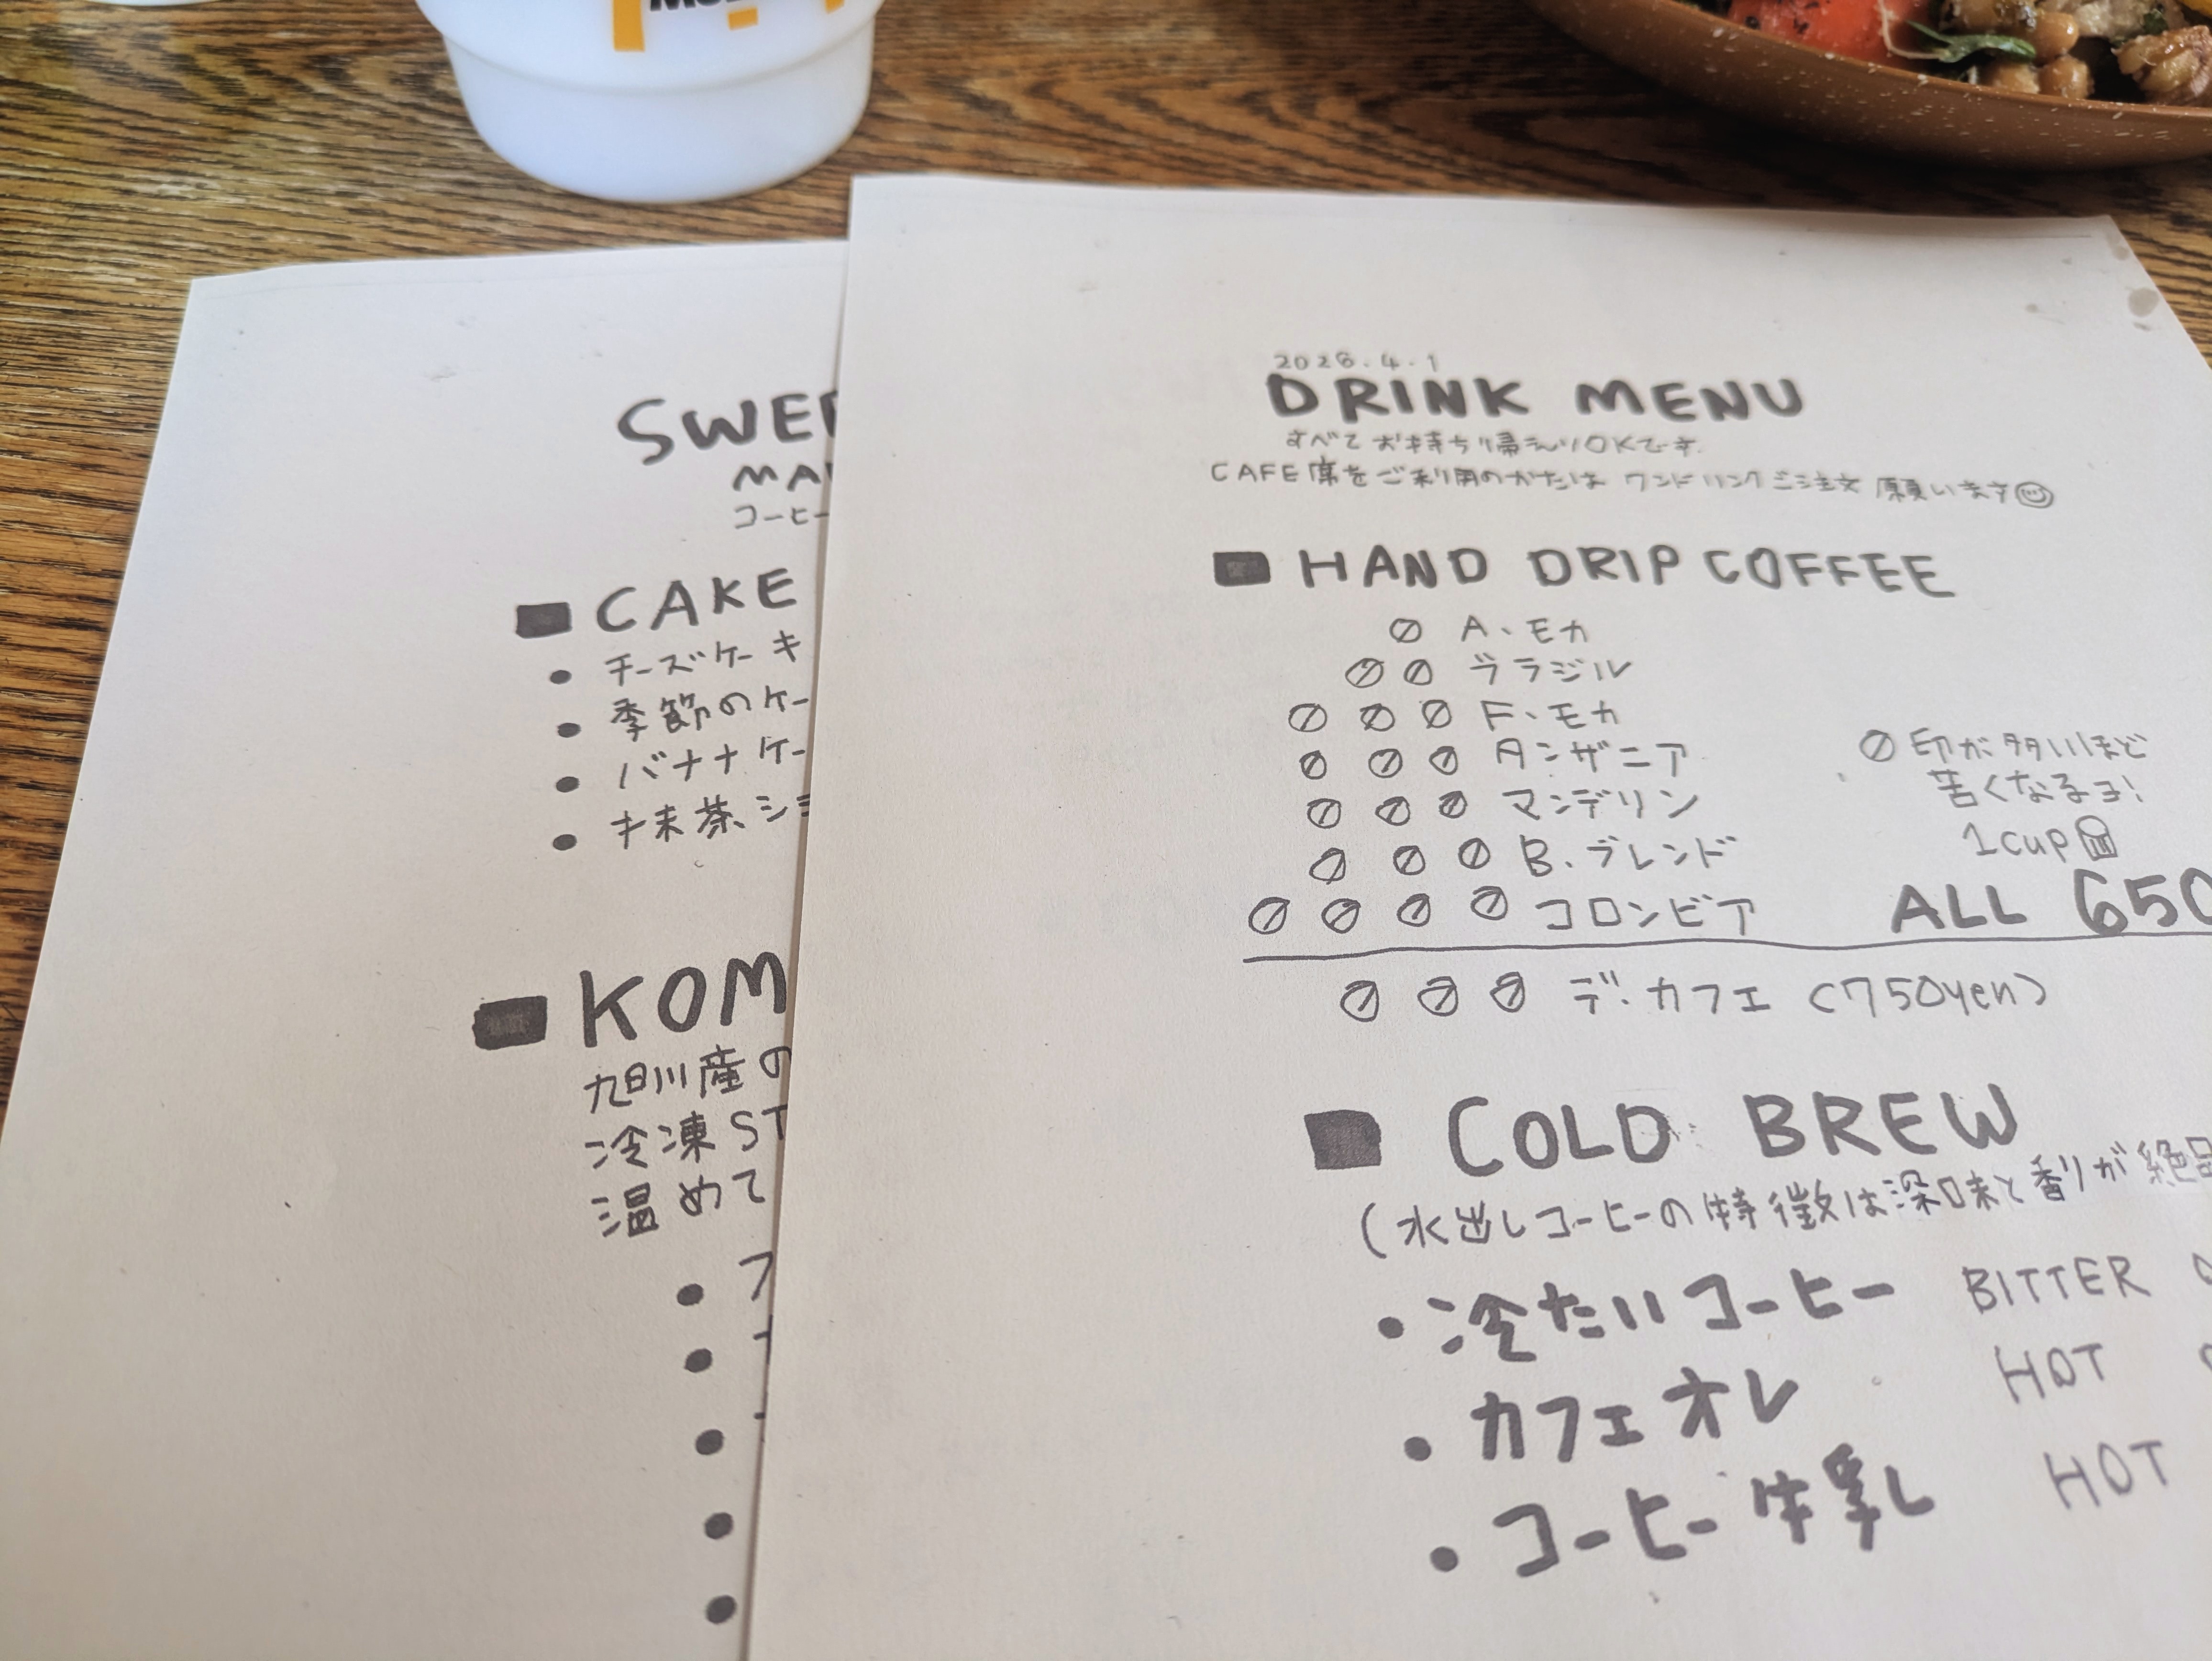 SWE
MA
コーヒー
CAKE
• チーズケーキ
• 季節のケー
• バナナケー
• 抹茶ショ
KOM
旭川産の
冷凍ST
温めて
2026.4.1
DRINK MENU
すべてお持ち帰えりOKです.
CAFE席をご利用のかたは ワンドリンクご注文願います
HAND DRIP COFFEE
A、モカ
ブラジル
F、モカ
タンザニア
マンデリン
B.ブレンド
コロンビア
印が多いほど
苦くなるヨ!
1cup
ALL 650
デ.カフェ (750yen)
COLD BREW
(水出しコーヒーの特徴は深味と香りが絶品
• 冷たいコーヒー BITTER
• カフェオレ HOT
• コーヒー牛乳 HOT